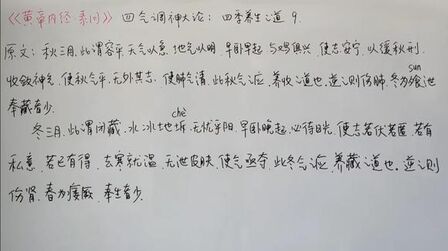 《黄帝内经·素问》 四气调神大论: 四季养生之道 9.
原文: 秋三月,此谓容平,天气以急,地气以明,早卧早起,与鸡俱兴,使志安宁,以缓秋刑,
收敛神气,使秋气平,无外其志,使肺气清,此秋气之应,养收之道也,逆之则伤肺,冬为飧泄,
sūn
奉藏者少.
冬三月,此谓闭藏,水冰地坼,无扰乎阳,早卧晚起,必待日光,使志若伏若匿,若有
chè
私意,若已有得,去寒就温,无泄皮肤,使气亟夺,此冬气之应,养藏之道也.逆之则
伤肾,春为痿厥,奉生者少.